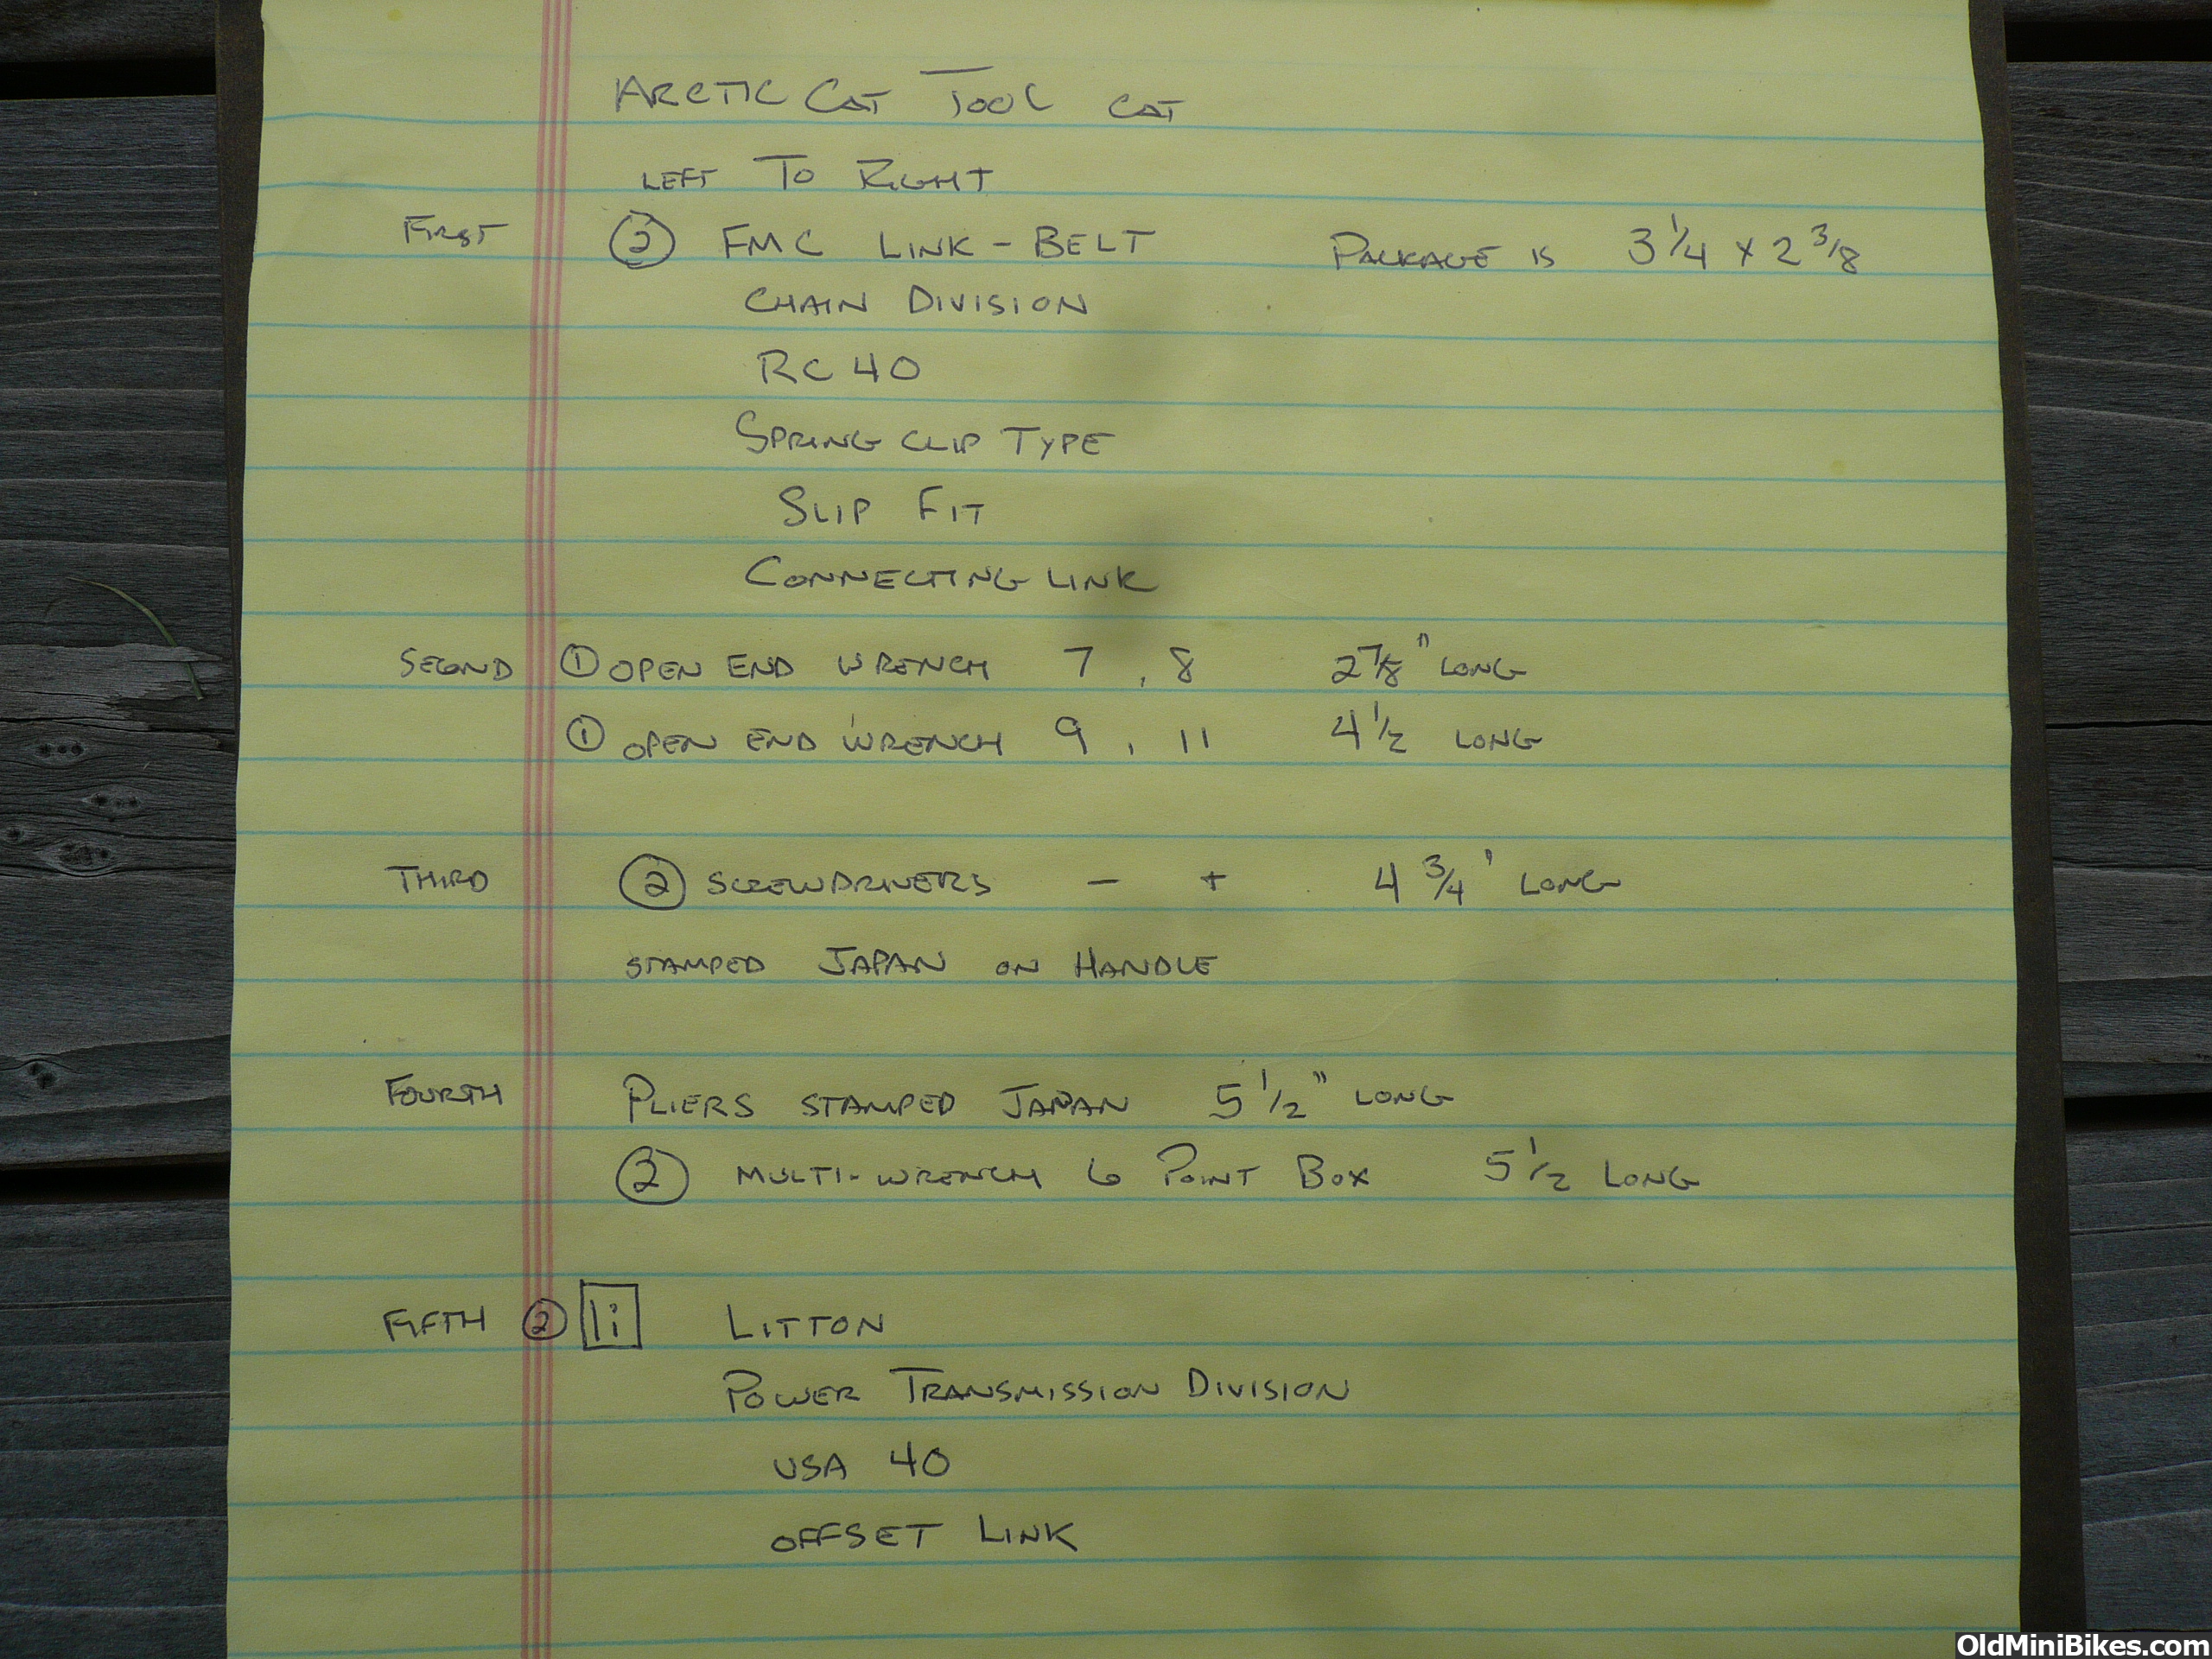 ARCTIC CAT TOOL CAT
LEFT TO RIGHT
FIRST ② FMC LINK-BELT PACKAGE IS 3 1/4 x 2 3/8
CHAIN DIVISION
RC 40
SPRING CLIP TYPE
SLIP FIT
CONNECTING LINK
SECOND ① OPEN END WRENCH 7, 8 2 7/8" LONG
① OPEN END WRENCH 9, 11 4 1/2 LONG
THIRD ② SCREWDRIVERS - + 4 3/4' LONG
STAMPED JAPAN ON HANDLE
FOURTH PLIERS STAMPED JAPAN 5 1/2" LONG
② MULTI-WRENCH 6 POINT BOX 5 1/2 LONG
FIFTH ② li LITTON
POWER TRANSMISSION DIVISION
USA 40
OFFSET LINK
OldMiniBikes.com